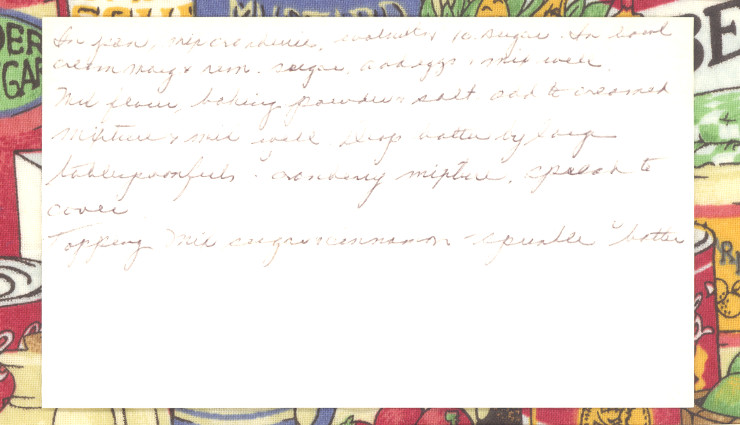 In pan, mix cranberries, walnuts & 1c. sugar. In bowl
cream marg & rem. sugar, add eggs & mix well
Mix flour, baking powder & salt add to creamed
mixture & mix well Drop batter by large
tablespoonfuls " cranberry mixture, spread to
cover
Topping Mix sugar & cinnamon sprinkle " batter
MUSTARD
DER
GAR
BE